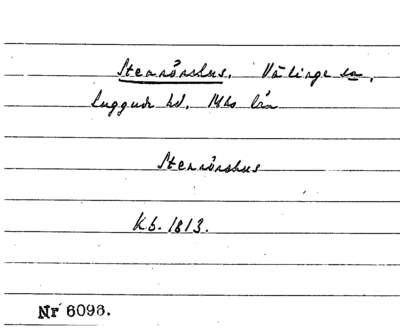 Stenrörshus. Vålinge sn,
Luggude hd. Mhs län
Stenrörshus
Kb. 1813.
Nr 6098.